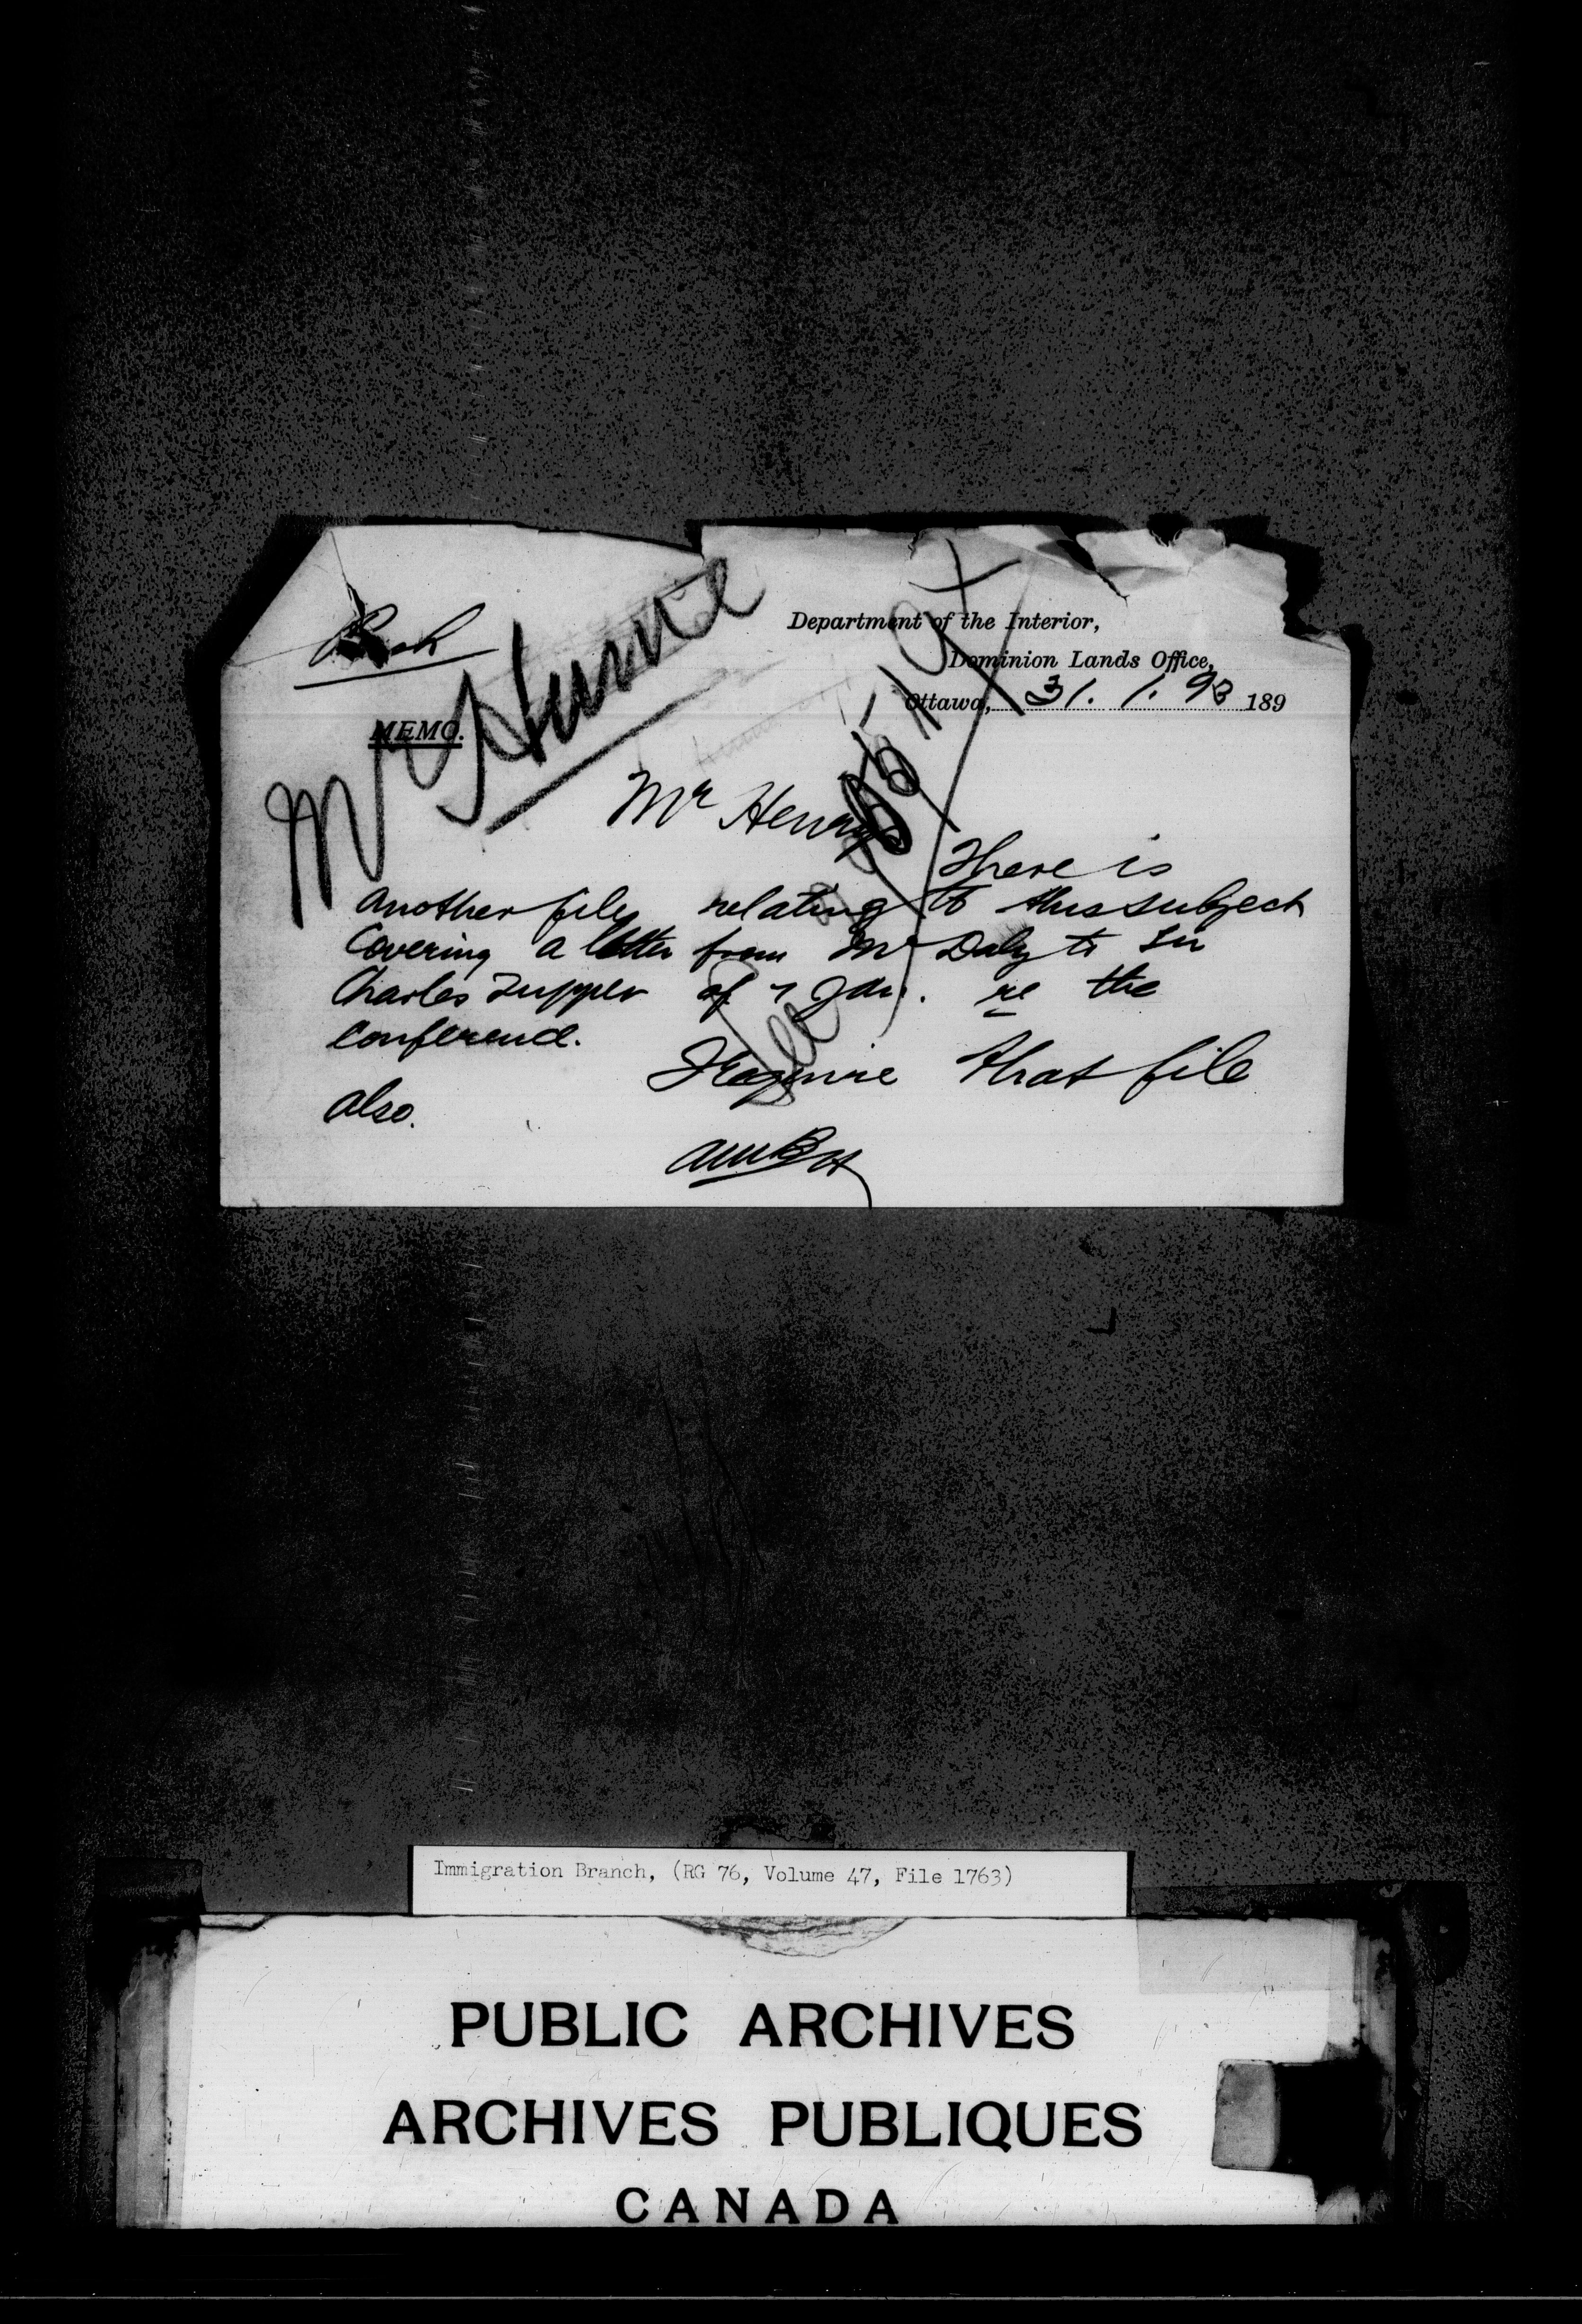 Department of the Interior,
Dominion Lands Office,
Ottawa, 31. 1. 93 189
MEMO.
Mr Hume
Mr Henry
There is
another file relating to this subject
Covering a letter from Mr Daly to Sir
Charles Tupper of 7 Jan. re the
conference.
I require that file
also.
Immigration Branch, (RG 76, Volume 47, File 1763)
PUBLIC ARCHIVES
ARCHIVES PUBLIQUES
CANADA